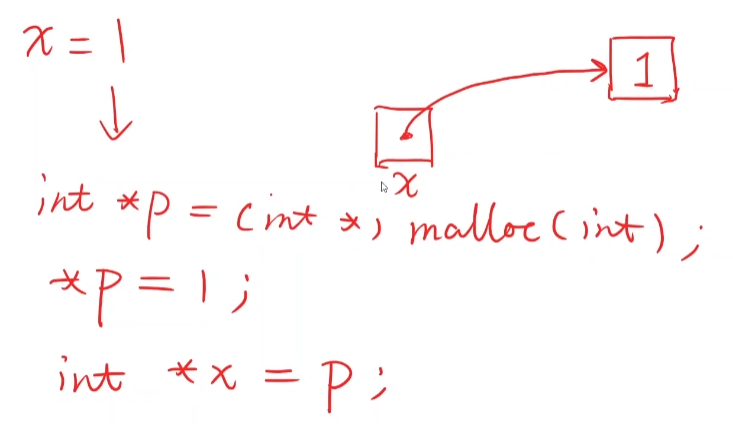 x = 1
1
x
int *p = (int *) malloc(int);
*p = 1;
int *x = p;